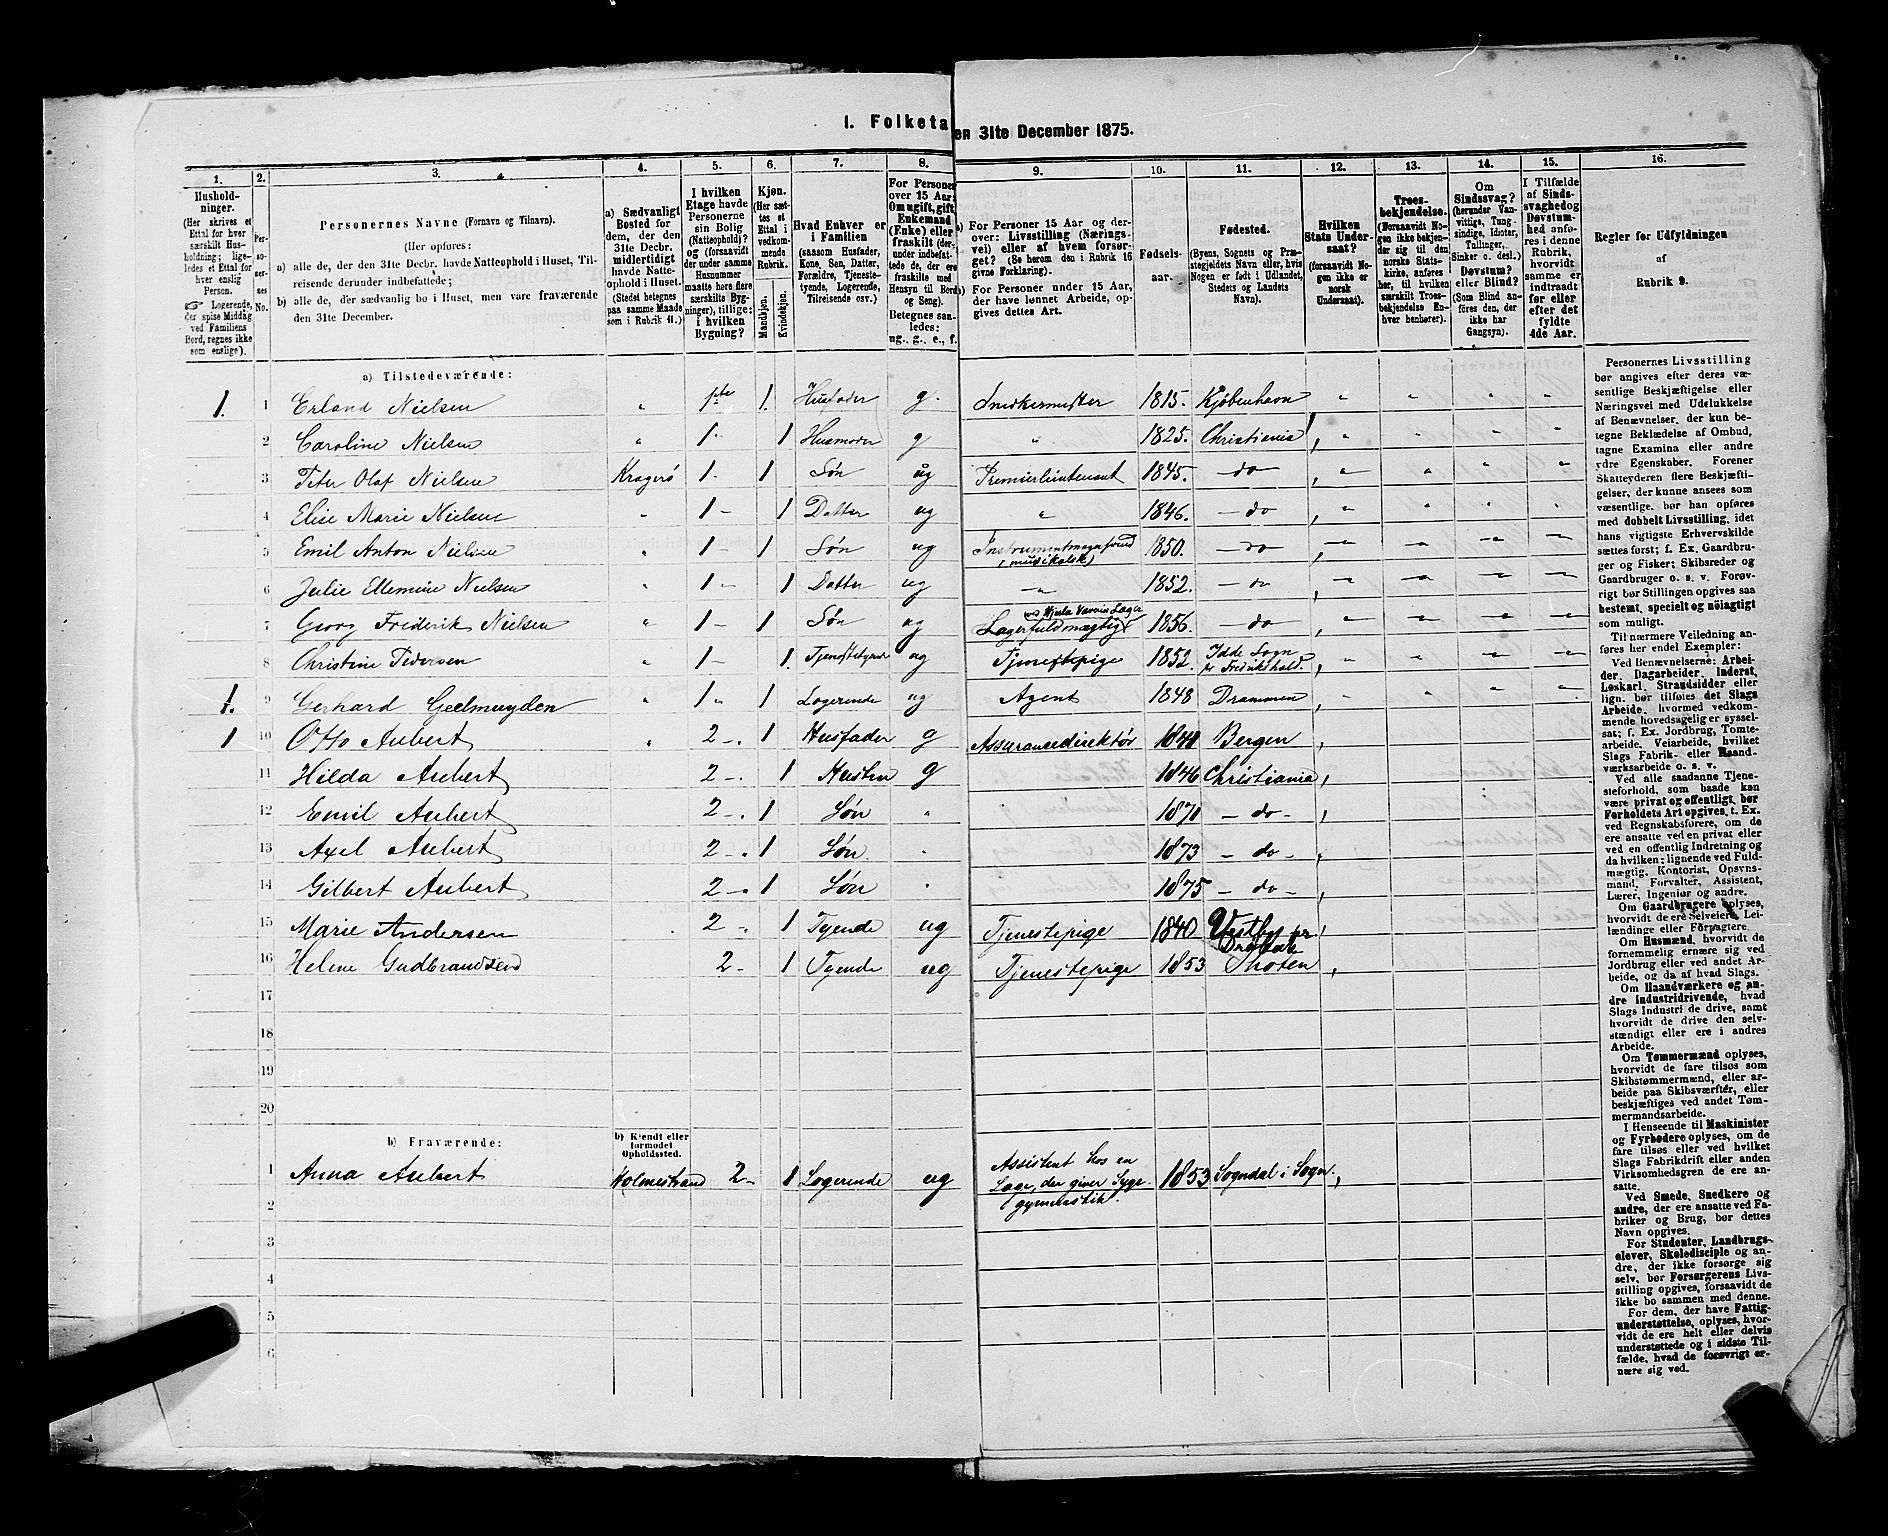 I. Folketa en 31te December 1875.
1. 2. 3. 4. 5. 6. 7. 8. 9. 10. 11. 12. 13. 14. 15. 16.
Hushold-
ninger.
(Her skrives et
Ettal for hver
særskilt Hus-
holdning; lige-
ledes et Ettal for
hver enslig
Person.
☞ Logerende,
der spise Middag
ved Familiens
Bord, regnes ikke
som enslige).
Per-
so-
ner-
nes
No.
Personernes Navne (Fornavn og Tilnavn).
(Her opføres:
a) alle de, der den 31te Decbr. havde Natteophold i Huset, Til-
reisende derunder indbefattede;
b) alle de, der sædvanlig bo i Huset, men vare fraværende
den 31te December.
a) Sædvanligt
Bosted for
dem, der den
31te Decbr.
midlertidigt
havde Natte-
ophold i Huset.
(Stedet betegnes
paa samme Maade
som i Rubrik 11.)
I hvilken
Etage havde
Personerne
sin Bolig
(Natteophold)?
og (forsaavidt
der under samme
Husnummer
maatte høre flere
særskilte Byg-
ninger), tillige:
i hvilken
Bygning?
Kjøn.
(Her sæt-
tes et
Ettal i
vedkom-
mende
Rubrik.
Mandkjøn.
Kvindekjøn.
Hvad Enhver er
i Familien
(saasom Husfader,
Kone, Søn, Datter,
Forældre, Tjeneste-
tyende, Logerende,
Tilreisende osv.)
For Personer
over 15 Aar:
Om ugift, gift,
Enkemand
(Enke) eller
fraskilt (der-
under indbefat-
tede de, der ere
fraskilte med
Hensyn til Bord
og Seng).
Betegnes saa-
ledes:
ug., g., e., f.
a) For Personer 15 Aar og der-
over: Livsstilling (Nærings-
vei) eller af hvem forsør-
get? (Se herom den i Rubrik 16
givne Forklaring).
b) For Personer under 15 Aar,
der have lønnet Arbeide, op-
gives dettes Art.
Fødsels-
aar.
Fødested.
(Byens, Sognets og Præ-
stegjeldets Navn eller, hvis
Nogen er født i Udlandet,
Stedets og Landets
Navn).
Hvilken
Stats Under-
saat?
(forsaavidt No-
gen ikke er
norsk
Undersaat).
Troes-
bekjendelse.
(Forsaavidt No-
gen ikke bekjen-
der sig til den
norske Stats-
kirke, anføres
her, til hvilken
særskilt Troes-
bekjendelse En-
hver henhører).
Om
Sindssvag?
(herunder Van-
vittige, Tung-
sindige, Idioter,
Tullinger,
Sinker o. desl.)
Døvstum?
eller Blind?
(Som Blind an-
føres den, der
ikke har
Gangsyn).
I Tilfælde
af Sinds-
svaghed og
Døvstum-
hed anfø-
res i denne
Rubrik,
hvorvidt
samme er
indtraadt
før eller
efter det
fyldte
4de Aar.
Regler for Udfyldningen
af
Rubrik 9.
a) Tilstedeværende:
1. 1 Erland Nielsen " pte 1. Husfader g. Snedkermester 1815. Kjøbenhavn " " " "
2 Caroline Nielsen " 1 " 1 Husmoder g " 1825. Christiania " " " "
3 Peter Olaf Nielsen Kragerö 1 - 1 Søn ug Premierlieutenant 1845. - do " " " "
4 Elise Marie Nielsen " 1 - 1 Datter ug " 1846. - do " " " "
5 Emil Anton Nielsen " 1 - 1 Søn ug Instrumentmagersvend 1850. - do - " " " "
(musikalsk)
6 Julie Ellemine Nielsen " 1 " 1 Datter ug - " 1852. - do " " " "
7 Georg Frederik Nielsen " 1 - 1 Søn ug Lagerfuldmægtig 1856. - do - " " " "
8 Christine Pedersen " 1 - 1. Tjenestetyende ug Tjenestepige 1852. Idde Sogn
pr Fredrikshald. " " " "
1. 9 Gerhard Geelmuyden " 1 " 1 Logerende ug Agent 1848 Drammen " " " "
1 10 Otto Aubert " 2 -. 1 Husfader g Assurancedirektör 1841 Bergen
11 Hilda Aubert 2 -. 1 Hustru g 1846 Christiania
12 Emil Aubert 2 -. 1 Søn " 1870 - do -
13 Axel Aubert 2 -. 1 Søn. " 1873 - do -
14 Gilbert Aubert 2 -. 1 Søn " 1875 - do -
15 Marie Andersen 2 -. 1 Tyende ug Tjenestepige 1840 Vestby pr
Drøbak
16 Helene Gudbrandsen 2 - 1 Tyende ug Tjenestepige 1853 Thoten
17
18
19
20
b) Fraværende:
b) Kjendt eller
formodet
Opholdssted.
1 Anna Aubert Holmestrand 2 - 1 Logerende ug Assistent hos en
Læge, der giver Syge
gymnastik. 1853 Sogndal i Sogn.
2
3
4
5
6
Personernes Livsstilling
bør angives efter deres væ-
sentlige Beskjæftigelse eller
Næringsvei med Udelukkelse
af Benævnelser, der kun be-
tegne Beklædelse af Ombud,
tagne Examina eller andre
ydre Egenskaber. Forener
Skatteyderen flere Beskjæfti-
gelser, der kunne ansees som
væsentlige, bør han opføres
med dobbelt Livsstilling, idet
hans vigtigste Erhvervskilde
sættes først; f. Ex. Gaardbru-
ger og Fisker; Skibsreder og
Gaardbruger o. s. v. Forøv-
rigt bør Stillingen opgives saa
bestemt, specielt og nöiagtigt
som muligt.
Til nærmere Veiledning an-
føres her endel Exempler:
Ved Benævnelserne: Arbei-
der, Dagarbeider, Inderst,
Løskarl, Strandsidder eller
lign. bør tilføies det Slags
Arbeide, hvormed vedkom-
mende hovedsagelig er syssel-
sat; f. Ex. Jordbrug, Tomte-
arbeide, Veiarbeide, hvilket
Slags Fabrik- eller Haand-
værksarbeide o. s. v.
Ved alle saadanne Tjene-
steforhold, som baade kan
være privat og offentligt, bør
Forholdets Art opgives, t. Ex.
ved Regnskabsførere, om de
ere ansatte ved en privat eller
ved en offentlig Indretning og
da hvilken; lignende ved Fuld-
mægtig, Kontorist, Opsyns-
mand, Forvalter, Assistent,
Lærer, Ingeniør og andre.
Om Gaardbrugere oplyses,
hvorvidt de ere Selveiere, Lei-
lændinge eller Forpagtere.
Om Husmænd, hvorvidt de
fornemmelig ernære sig ved
Jordbrug eller ved andet Ar-
beide, og da af hvad Slags.
Om Haandværkere og an-
dre Industridrivende, hvad
Slags Industri de drive, samt
hvorvidt de drive den selv-
stændigt eller ere i andres
Arbeide.
Om Tømmermænd oplyses,
hvorvidt de fare tilsøs som
Skibstømmermænd, eller ar-
beide paa Skibsværfter, eller
beskjæftiges ved andet Tøm-
mermandsarbeide.
I Henseende til Maskinister
og Fyrbødere oplyses, om de
fare tilsøs eller ved hvilket
Slags Fabrikdrift eller anden
Virksomhedsgren de ere an-
satte.
Ved Smede, Snedkere og
andre, der ere ansatte ved Fa-
briker og Brug, bør dettes
Navn opgives.
For Studenter, Landbrugs-
elever, Skoledisciple og an-
dre, der ikke forsørge sig
selv, bør Forsørgerens Livs-
stilling opgives, forsaavidt de
ikke bo sammen med denne.
For dem, der have Fattig-
understøttelse, oplyses, hvor-
vidt de ere helt eller delvis
understøttede og i sidste Til-
fælde, hvad de forøvrigt er-
nære sig ved.